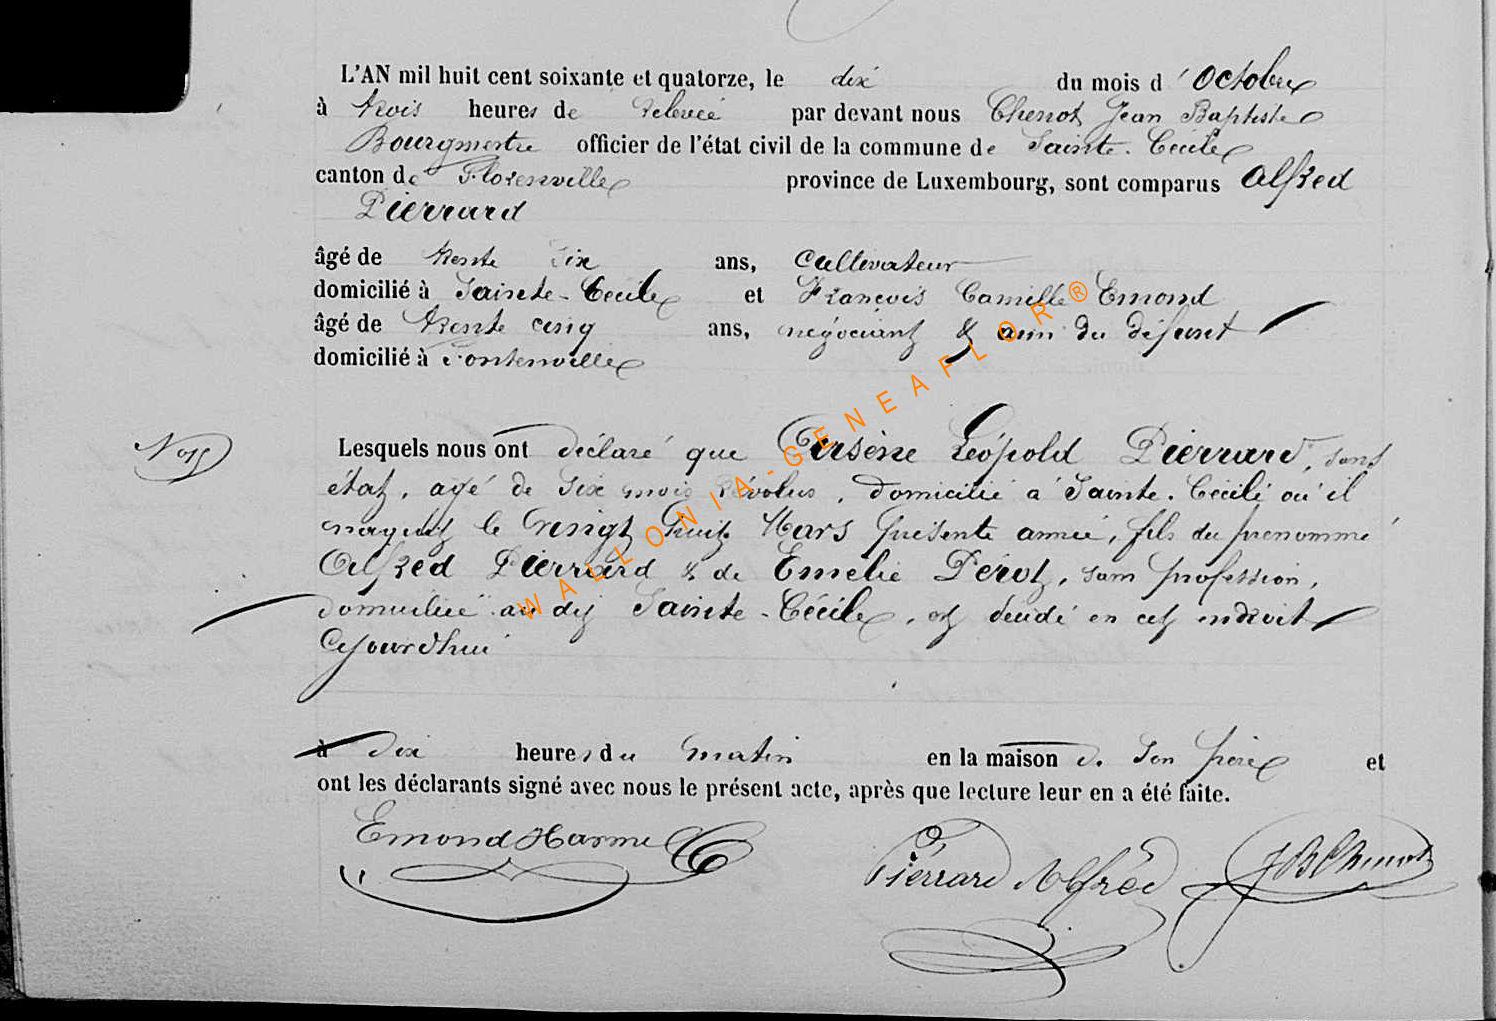 L'AN mil huit cent soixante et quatorze, le dix du mois d'Octobre
à trois heures de relevée par devant nous Chenot Jean Baptiste
Bourgmestre officier de l'état civil de la commune de Sainte-Cécile
canton de Florenville province de Luxembourg, sont comparus Alfred
Pierrard
âgé de trente six ans, cultivateur
domicilié à Sainte-Cécile et François Camille Emond
âgé de trente cinq ans, négociant & ami du défunt
domicilié à Fontenoille
Lesquels nous ont déclaré que Arsène Léopold Pierrard, sans
N° 15
état, agé de six mois révolus, domicilié à Sainte-Cécile où il
naquit le vingt huit Mars présente année, fils du prénommé
Alfred Pierrard & de Emélie Pérot, sans profession,
domiciliée au dit Sainte-Cécile, est décédé en cet endroit
cejourdhui
à dix heures du matin en la maison de son père et
ont les déclarants signé avec nous le présent acte, après que lecture leur en a été faite.
Emond Harmel
Pierrard Alfred
JB Chenot
WALLONIA-GENEAFLOR®